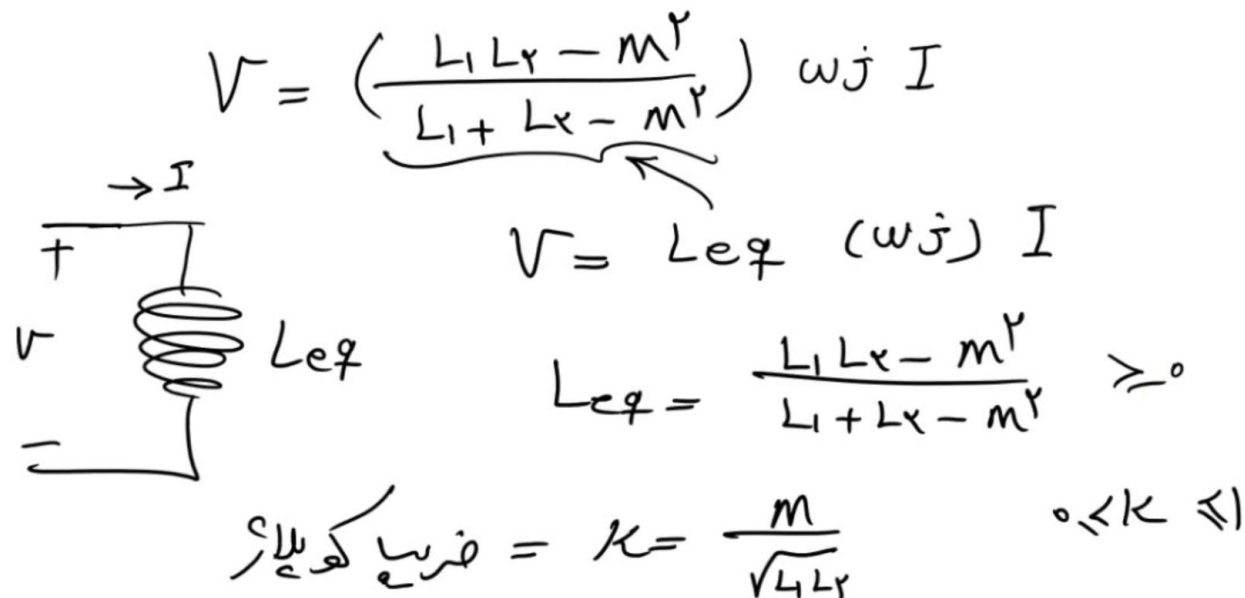 V = (L₁L₂ − m²) / (L₁ + L₂ − m²) ωj I
→ I
+
V = Leq (ωj) I
v
Leq
Leq = (L₁L₂ − m²) / (L₁ + L₂ − m²) ≥ ۰
−
ضریب کوپلاژ = K = m / √L₁L₂
۰ ≤ K ≤ ۱